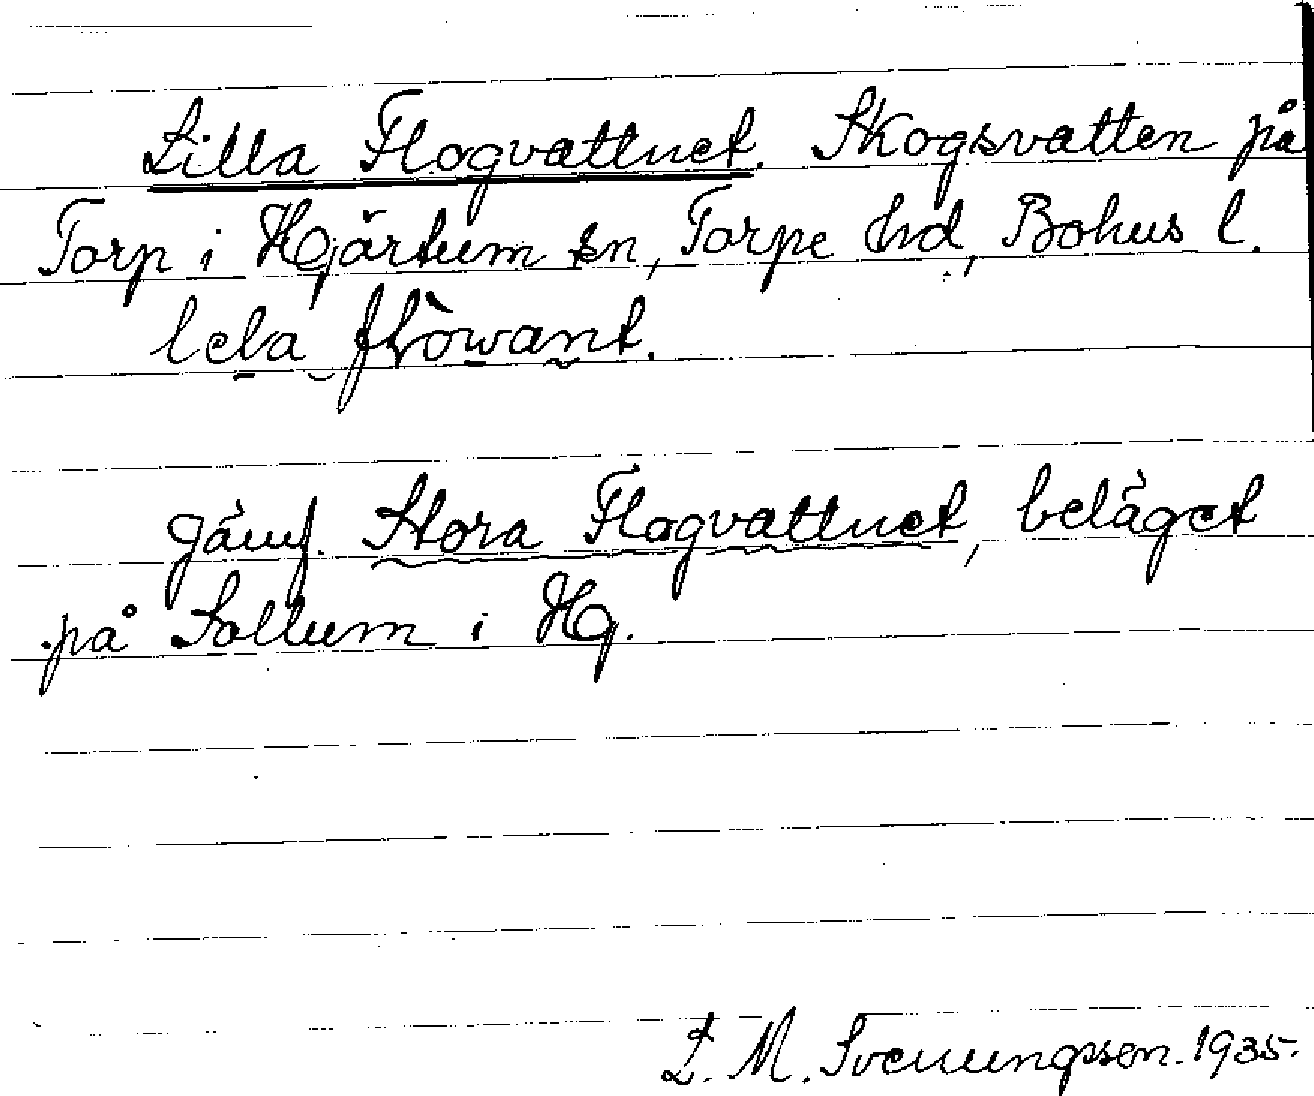 Lilla Flogvattnet. Skogsvatten på
Torp i Hjärtum sn, Torpe hd, Bohus l.
lela flòwant.
Jämf. Stora Flogvattnet, beläget
på Sollum i Hj.
L. M. Svenungsson. 1935.